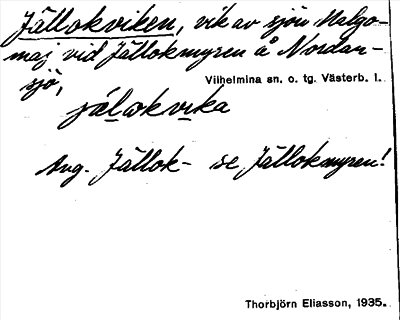 Jällokviken, vik av sjön Malgo-
maj vid Jällokmyren å Nordan-
sjö,
Vilhelmina sn. o. tg. Västerb. l.
jälokvika
Ang. Jällok- se Jällokmyren!
Thorbjörn Eliasson, 1935.